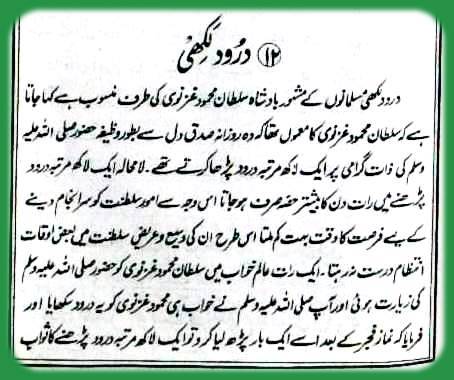 ۱۲ درود لکھی
درود لکھی مسلمانوں کے مشہور بادشاہ سلطان محمود غزنوی کی طرف منسوب ہے کہا جاتا
ہے کہ سلطان محمود غزنوی کا معمول تھا کہ وہ روزانہ صدق دل سے بطور وظیفہ حضور صلی اللہ علیہ
وسلم کی ذات گرامی پر ایک لاکھ مرتبہ درود پڑھا کرتے تھے۔ لا محالہ ایک لاکھ مرتبہ درود
پڑھنے میں رات دن کا بیشتر حصہ صرف ہو جاتا اس وجہ سے امور سلطنت کو سر انجام دینے
کے لیے فرصت کا وقت بہت کم ملتا اس طرح ان کی وسیع و عریض سلطنت میں بعض اوقات
انتظام درست نہ رہتا۔ ایک رات عالم خواب میں سلطان محمود غزنوی کو حضور صلی اللہ علیہ وسلم
کی زیارت ہوئی اور آپ صلی اللہ علیہ وسلم نے خواب ہی محمود غزنوی کو یہ درود سکھایا اور
فرمایا کہ نماز فجر کے بعد اسے ایک بار پڑھ لیا کرو تو ایک لاکھ مرتبہ درود پڑھنے کا ثواب